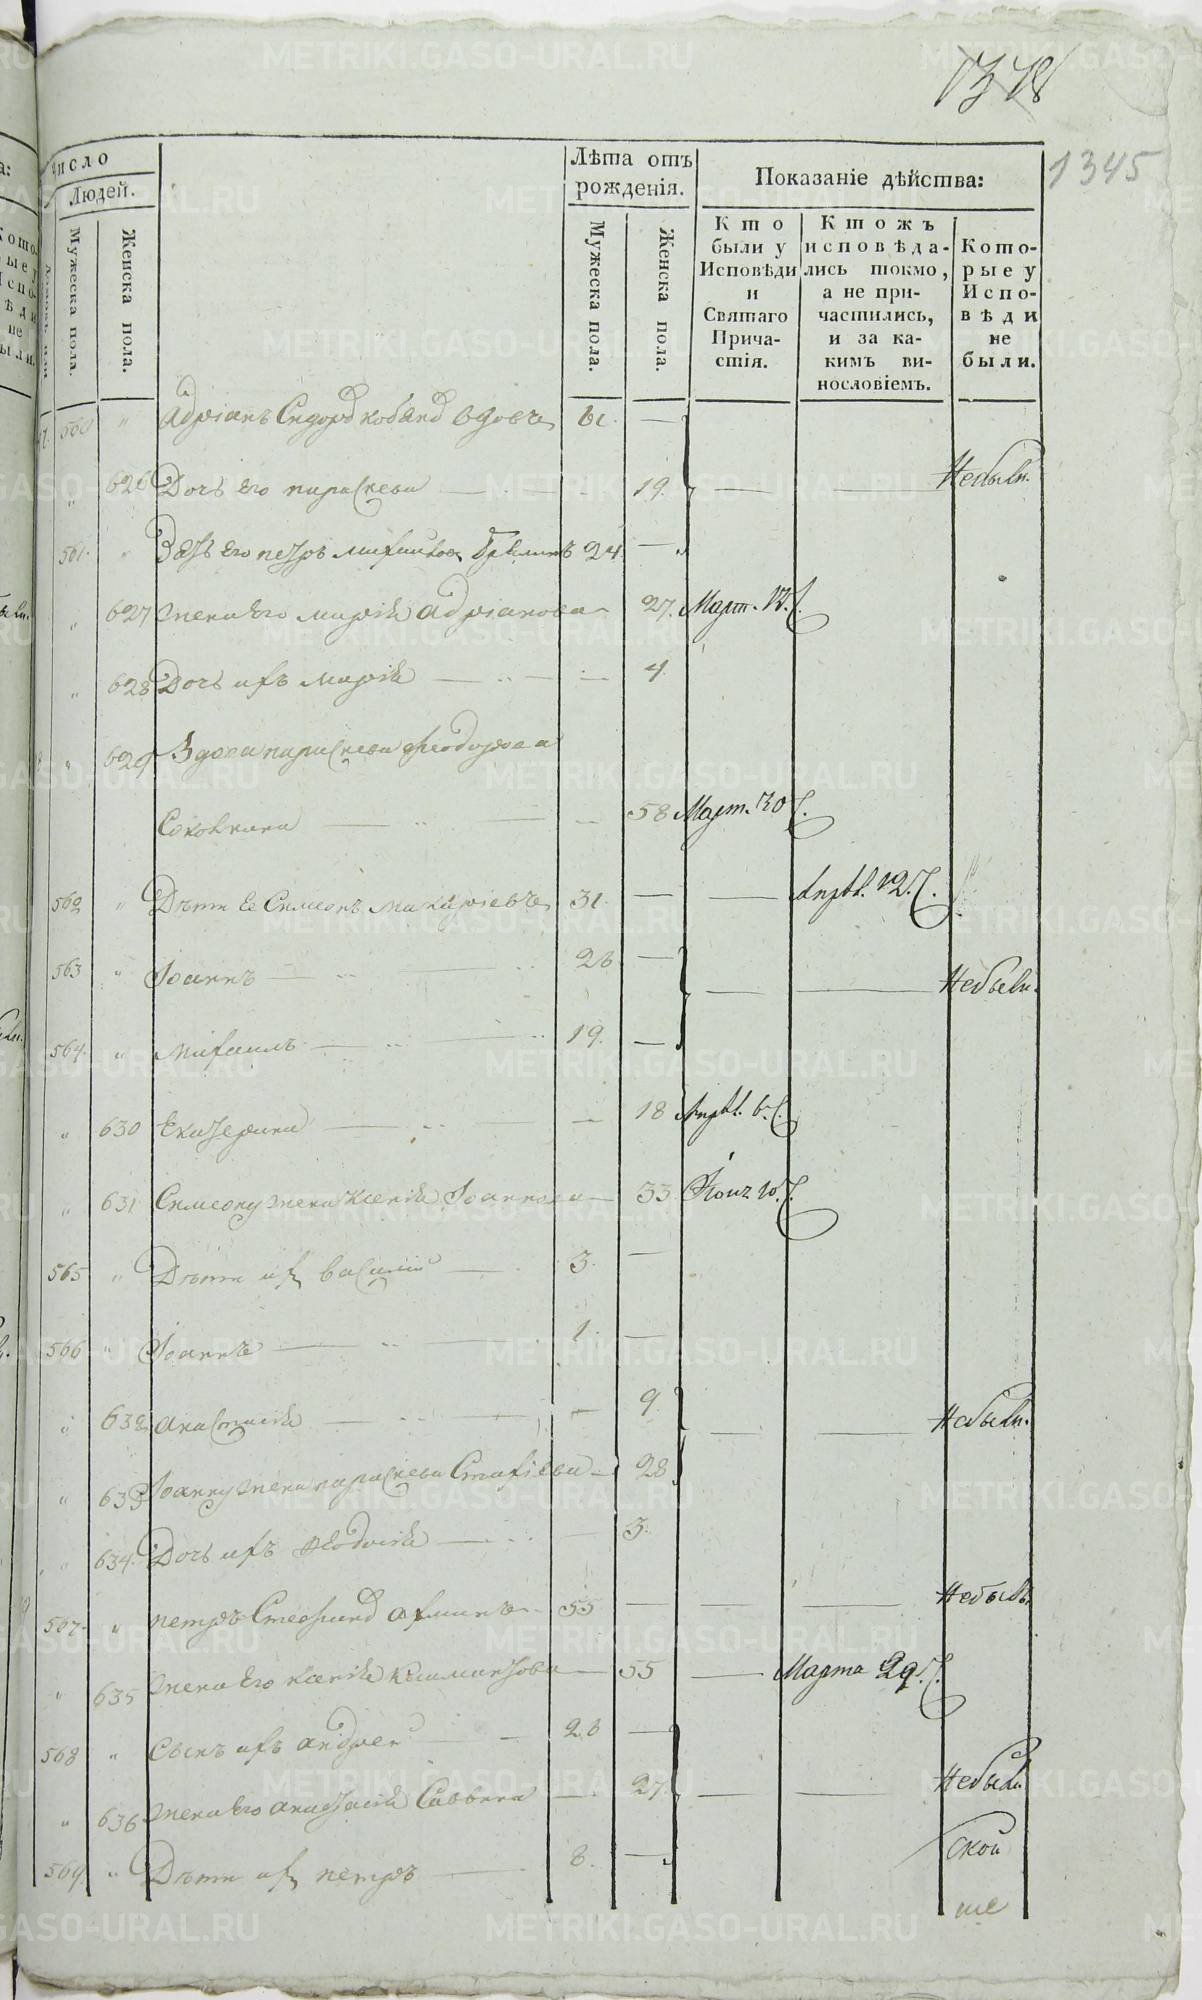 1318
1345
Число
Людей.
Мужеска пола.
Женска пола.
Лѣта отъ
рожденія.
Мужеска пола.
Женска пола.
Показаніе дѣйства:
Кто
были у
Исповѣди
и
Святаго
Прича-
стія.
Ктожъ
исповѣда-
лись токмо,
а не при-
частились,
и за ка-
кимъ ви-
нословіемъ.
Кото-
рые у
Испо-
вѣди
не
были.
560 " Адріанъ Сидоровъ вдовъ 61. —
" 626 Дочь Его параскева — 19. — — Небыли.
561. " Зять Его петръ михайловъ 24. —
" 627 жена Его марія Адріанова — 27. Март. 12.
" 628 Дочь ихъ марія — 4.
" 629 Вдова параскева Феодорова
Соковнина — 58 Март. 30
562 " Дѣти Ея Симеонъ макаріевъ 31. — — Апрѣл. 12.
563 " Іоаннъ — 26 — — — Небыли.
564. " михаилъ — 19. —
" 630 Екатерина — 18 Апрѣл. 6.
" 631 Симеону жена Ксенія Іоаннова — 33 Іюня 10.
565 " Дѣти ихъ василій — 3. —
566 " Іоаннъ — 1. —
" 632 анастасія — 9. — — Небыли.
" 633 Іоанну жена параскева Стахіева — 28
" 634. Дочь ихъ Феодосія — 3.
567. " петръ 55 — — Небылъ.
" 635 жена Его ксенія — 55 — Марта 29.
568 " Сынъ ихъ андрей — 26 —
" 636 жена Его анастасія Саввина — 27. — — Небыли
569. " Дѣти ихъ петръ — 8. —
ской
ше
METRIKI.GASO-URAL.RU